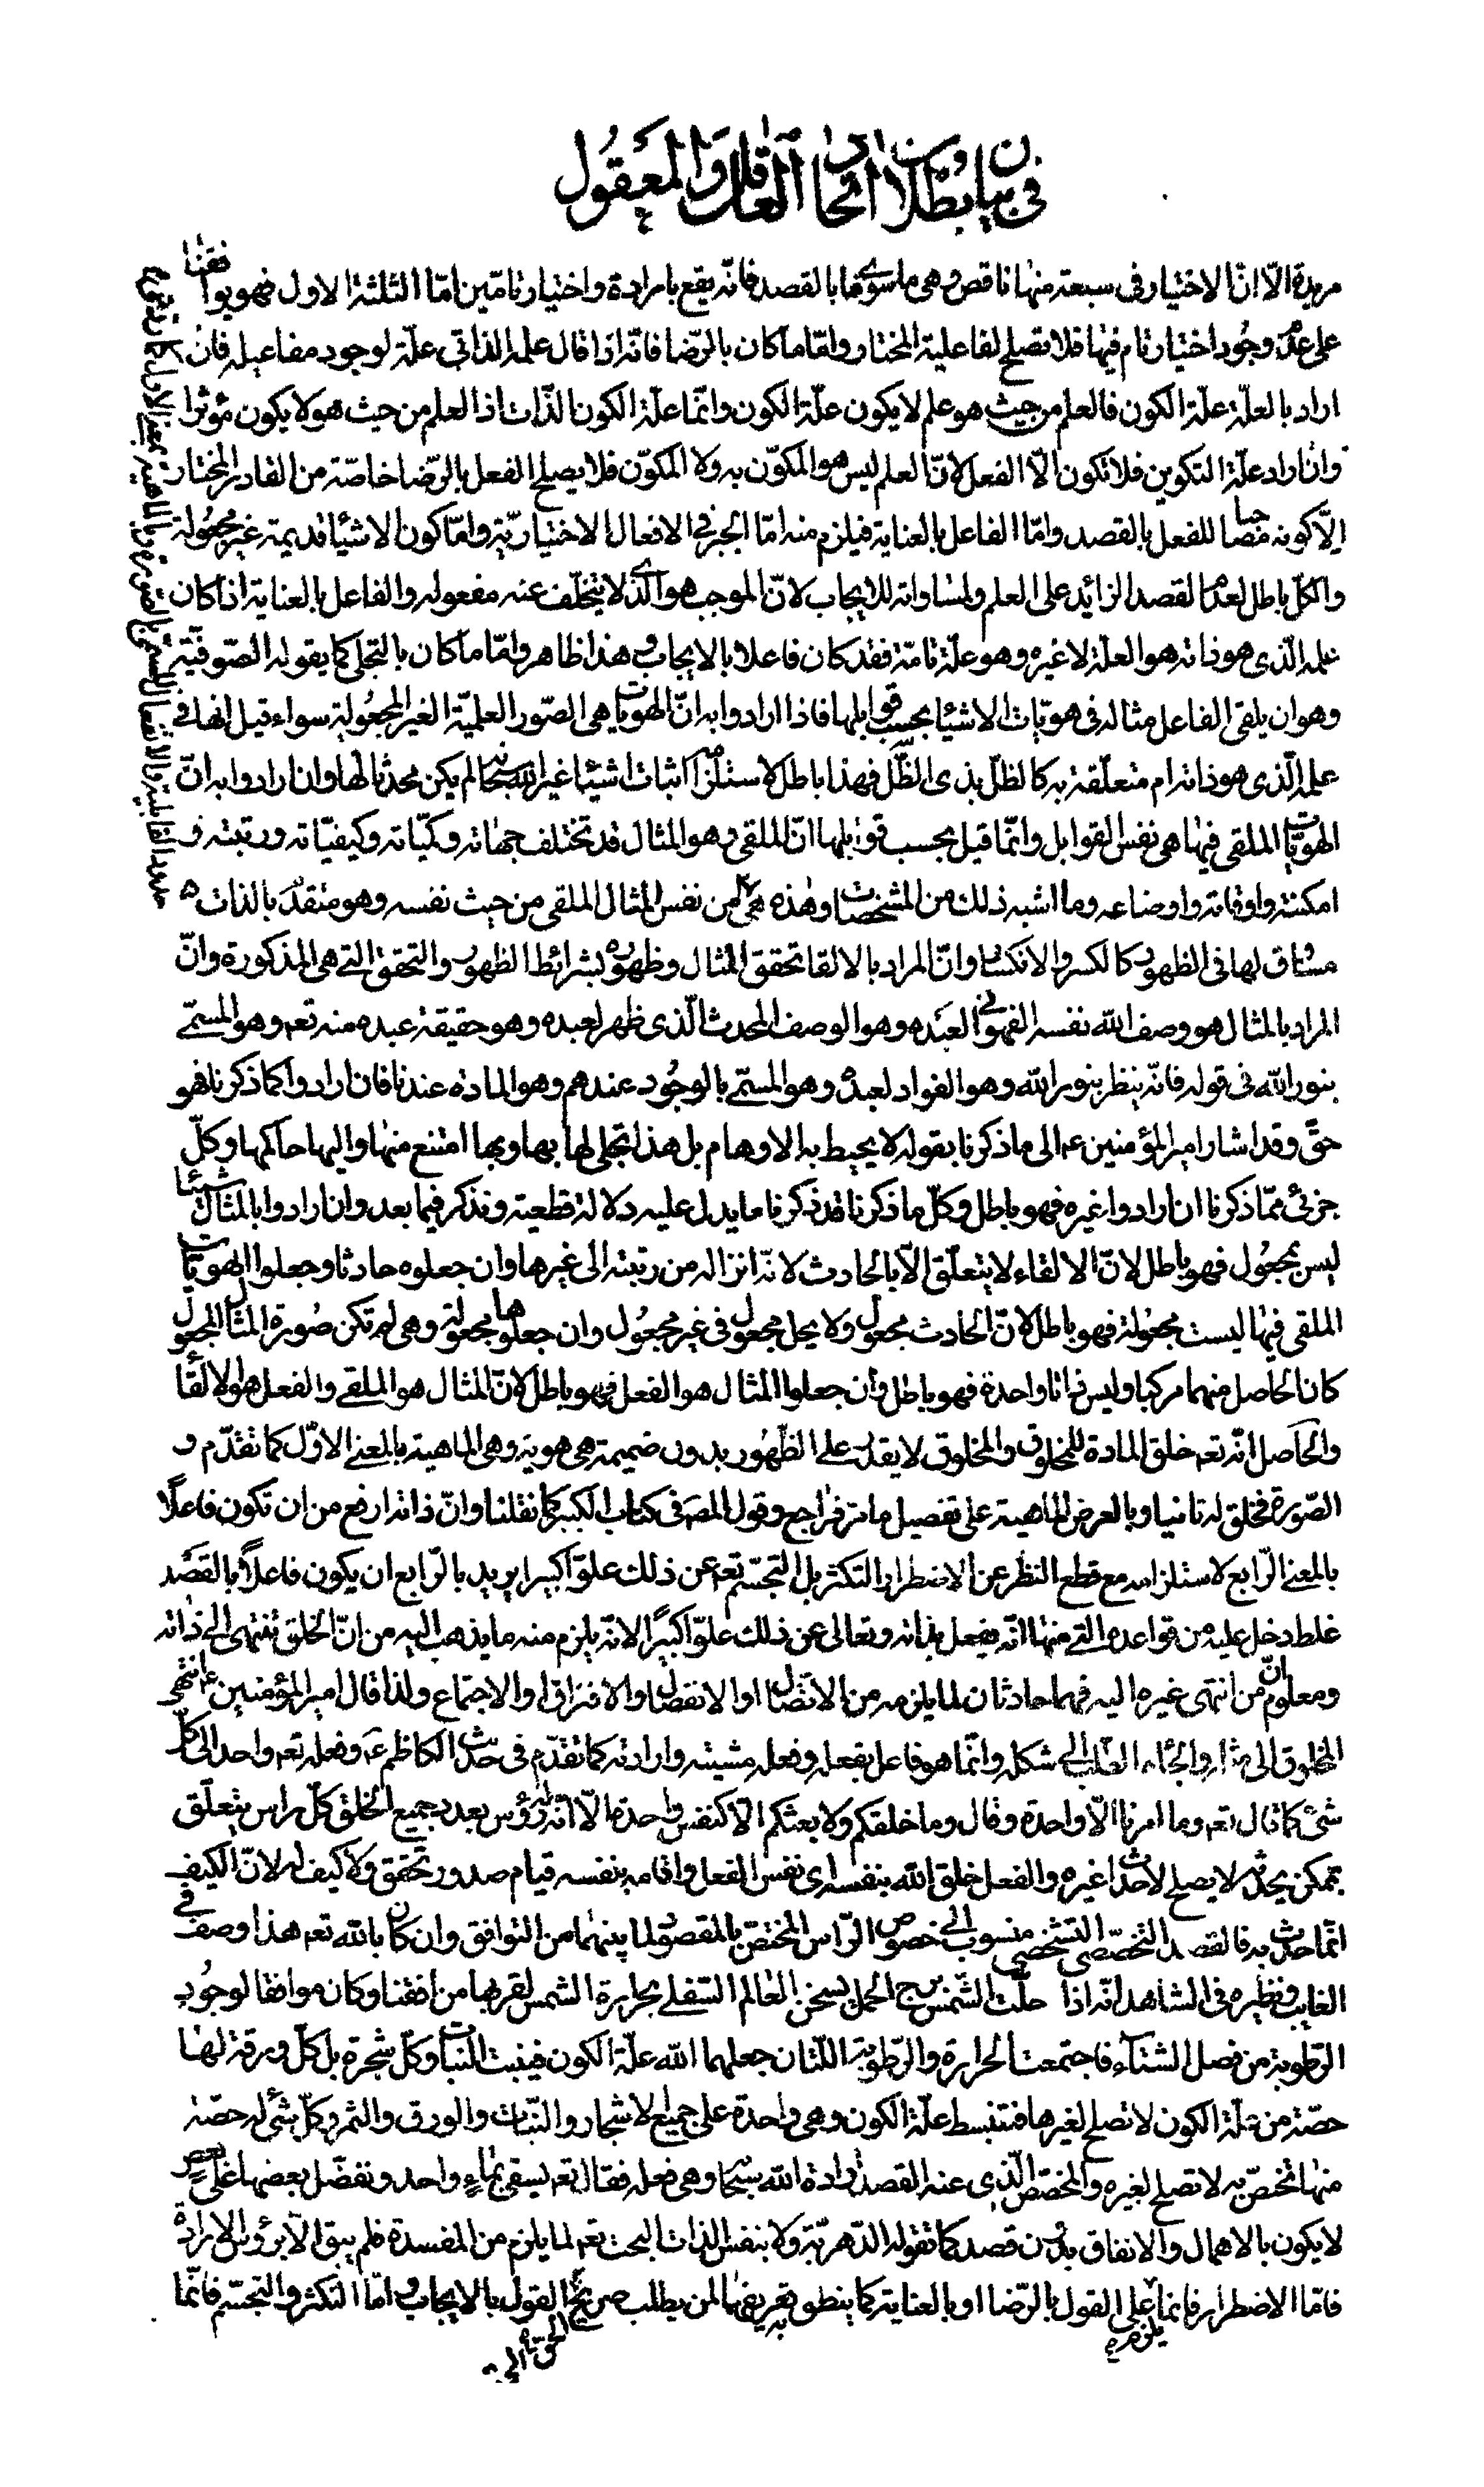 في بيان بطلان اتحاد العاقل والمعقول
مريدة الّا انّ الاختيار فى سبعة منها ناقص وهى ما سوى ها بالقصد فانّه يقع بارادة واختيار تامّين امّا الثلثة الاول فهو يوافقنا
على عدم وجود اختيار تام فيها فلا تصلح لفاعلية المختار وامّا ما كان بالرّضا فانّه اذا قال علمه الذاتى علّة لوجود مفاعيله فان
اراد بالعلّة علّة الكون فالعلم من حيث هو علم لا يكون علّة الكون وانّما علّة الكون الذّات اذ العلم من حيث هو لا يكون مؤثرا
وان اراد علّة التكوين فلا تكون الّا الفعل لانّ العلم ليس هو المكوّن به ولا المكوّن فلا يصلح الفعل بالرّضا خاصّة من القادر المختار
الّا كونه مصاحبا للفعل بالقصد وامّا الفاعل بالعناية فيلزم منه امّا الجبر فى الافعال الاختياريّة وامّا كون الاشياء قديمة غير مجعولة
والكلّ باطل لعدم القصد الزائد على العلم ولمساواته للايجاب لانّ الموجب هو الذى لا يتخلّف عنه مفعوله والفاعل بالعناية اذا كان
علمه الّذى هو ذاته هو العلة لا غيره وهو علّة تامّة فقد كان فاعلا بالايجاب وهذا ظاهر وامّا ما كان بالتجلى كما يقوله الصّوفيّة
وهو ان يلقى الفاعل مثاله فى هويّات الاشياء بحسب قوابلها فاذا ارادوا به انّ الهويّات هى الصّور العلميّة الغير المجعولة سواء قيل انها فى
علمه الّذى هو ذاته ام متعلّقة به كالظلّ بذى الظّلّ فهذا باطل لاستلزام اثبات اشياء غير الله سبحانه لم يكن محدثا لها وان ارادوا به انّ
الهويّات الملقى فيها هى نفس القوابل وانّما قيل بحسب قوابلها انّ الملقى وهو المثال قد تختلف جهاته وكميّاته وكيفيّاته ورتبته و
امكنته واوقاته واوضاعه وما اشبه ذلك من المشخصات وهذه هى من نفس المثال الملقى من حيث نفسه وهو متقدّم بالذات
مساوق لها فى الظهور كالكسر والانكسار وانّ المراد بالالقاء تحقق المثال وظهوره بشرائط الظهور والتحقق التے هى المذكورة وانّ
المراد بالمثال هو وصف الله نفسه الفهوانى لعبده وهو الوصف المحدث الّذى ظهر لعبده وهو حقيقة عبده منه تعه وهو المسمّے
بنور الله فى قوله فانّه ينظر بنور الله وهو الفؤاد لعبده وهو المسمّے بالوجود عندهم وهو المادة عندنا فان ارادوا كما ذكرنا فهو
حقّ وقد اشار امير المؤمنين ع الى ما ذكرنا بقوله لا يحيط به الاوهام بل هذا تجلى لها بها وبها امتنع منها واليها حاكمها وكلّ
جزئى ممّا ذكرنا ان ارادوا غيره فهو باطل وكلّ ما ذكرنا قد ذكرنا ما يدل عليه دلالة قطعية ونذكر فيما بعد وان ارادوا بالمثال شيئا
ليس بمجعول فهو باطل لانّ الالقاء لا يتعلّق الّا بالحادث لانّه انزاله من رتبته الى غيرها وان جعلوه حادثا وجعلوا الهويّات
الملقى فيها ليست مجعولة فهو باطل لانّ الحادث مجعول ولا يحل مجعول فى غير مجعول وان جعلوها مجعولة وهى لم تكن صورة المثال المجعول
كان الحاصل منهما مركبا وليس ذاتا واحدة فهو باطل وان جعلوا المثال هو الفعل فهو باطل لانّ المثال هو الملقے والفعل هو الالقاء
والحاصل انّه تعه خلق المادة للمخلوق والمخلوق لا يقدر علے الظهور بدون ضميمة هى هويته وهى الماهية بالمعنے الاوّل كما تقدّم و
الصّورة فخلق له ثانيا وبالعرض الماهية على تفصيل ما مرّ فراجع وقول المصه فى كتاب الكبير كما نقلنا وانّ ذاته ارفع من ان تكون فاعلًا
بالمعنے الرّابع لاستلزامه مع قطع النظر عن الاضطرار التكثر بل التجسّم تعه عن ذلك علوّا كبيرا يريد بالرّابع ان يكون فاعلاً بالقصد
غلط دخل عليه من قواعده التے منها انّه يفعل بذاته وتعالى عن ذلك علوّا كبيرًا لانّه يلزم منه ما يذهب اليه من انّ الخلق تنتهى الے ذاته
ومعلوم انّ من انتهى غيره اليه فهما حادثان لما يلزمه من الاتّصال او الانفصال والافتراق او الاجتماع ولذا قال امير المؤمنين ع انتهى
المخلوق الى مثله والجأه الطلب الے شكله وانّما هو فاعل بفعله وفعله مشيته وارادته كما تقدّم فى حديث الكاظم ع وفعله تعه واحد الى كلّ
شئ كما قال تعه وما امرنا الّا واحدة وقال وما خلقكم ولا بعثكم الّا كنفس واحدة الّا انّه له رؤس بعدد جميع الخلق كلّ راس يتعلّق
بممكن يحدثه لا يصلح لاحداث غيره والفعل خلق الله بنفسه اى نفس الفعل واقامه بنفسه قيام صدور وتحقق ولا كيف له لانّ الكيف
انّما حدث به فالقصد التخصّصى التشخصى منسوب الے خصوص الرّاس المختصّ بالمقصود لما بينهما من التوافق وان كان بالله تعه هذا وصفه فى
الغايب ونظيره فى الشاهد انّه اذا حلّت الشّمس برج الحمل يسخن العالم السّفلے بحرارة الشمس لقربها من افقنا وكان موافقا لوجود
الرّطوبة من فصل الشتاء فاجتمعت الحرارة والرّطوبة اللّتان جعلهما الله علّة الكون فينبت النبات وكلّ شجرة بل كلّ ورقة لها
حصّة من علّة الكون لا تصلح لغيرها فتنبسط علّة الكون وهى واحدة على جميع الاشجار والنّبات والورق والثمر وكلّ شئ له حصّة
منها تختصّ به لا تصلح لغيره والمخصّص الّذى عنه القصد ارادة الله سبحانه وهى فعله فقال تعه يسقى بماءٍ واحد ونفضّل بعضها على بعض
لا يكون بالاهمال والاتفاق بدون قصد كما تقوله الدّهريّة ولا بنفس الذات البحت تعه لما يلزم من المفسدة فلم يبق الّا برؤس الارادة
فامّا الاضطرار فانّما يلزمه على القول بالرّضا او بالعناية كما ينطق به تعريفهما لمن يطلب صريح الحق القول بالايجاب وامّا التكثر والتجسّم فانّما